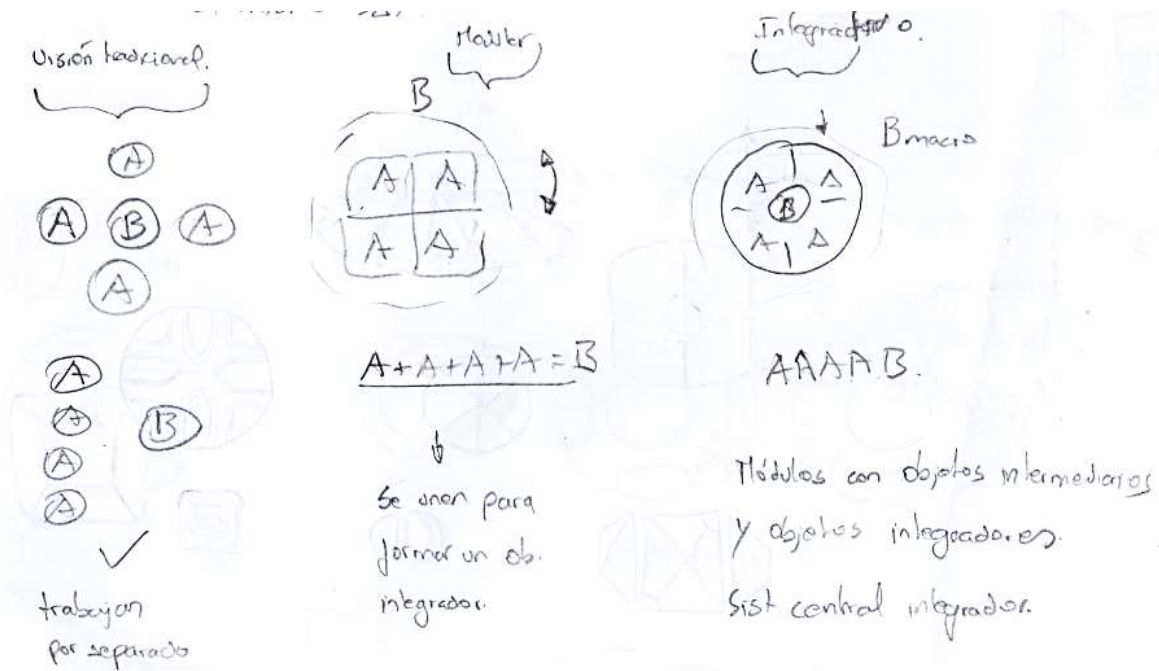 Visión tradicional.
A
A B A
A
A
A
B
A
A
trabajan
por separado
Master
B
A A
A A
A+A+A+A=B
Se unen para
formar un ob.
integrador.
Integrado.
Bmacro
A A
B
A A
AAAAB.
Módulos con objetos intermediarios
y objetos integradores.
Sist central integrador.